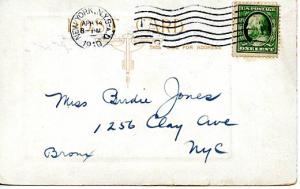 NEW YORK, N.Y. STA. O
APR 14
8-PM
1910
POST CARD
THIS SIDE FOR ADDRESS
U.S. POSTAGE
ONE CENT
Miss Birdie Jones
1256 Clay Ave
Bronx
NYC